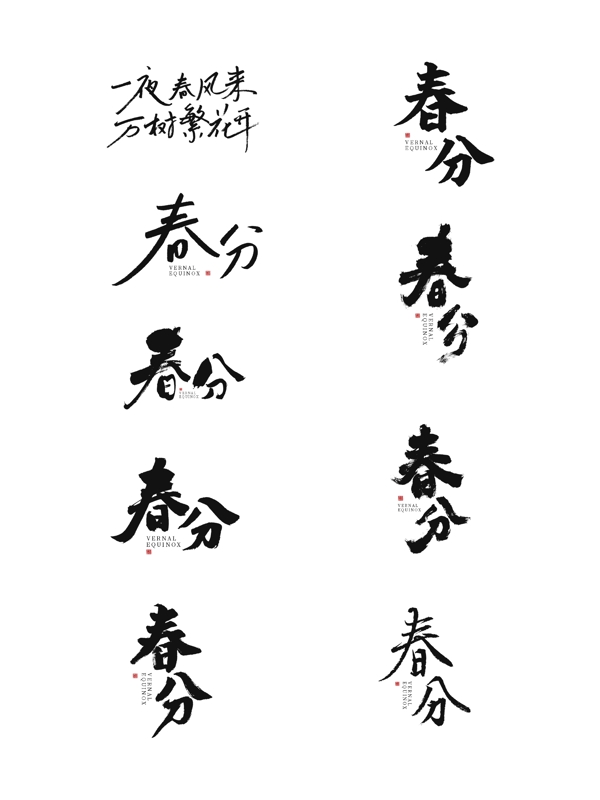 一夜春风来
万树繁花开
春分
VERNAL
EQUINOX
春分
VERNAL
EQUINOX
春分
VERNAL
EQUINOX
春分
VERNAL
EQUINOX
春分
VERNAL
EQUINOX
春分
VERNAL
EQUINOX
春分
VERNAL
EQUINOX
春分
VERNAL
EQUINOX
春分
VERNAL
EQUINOX